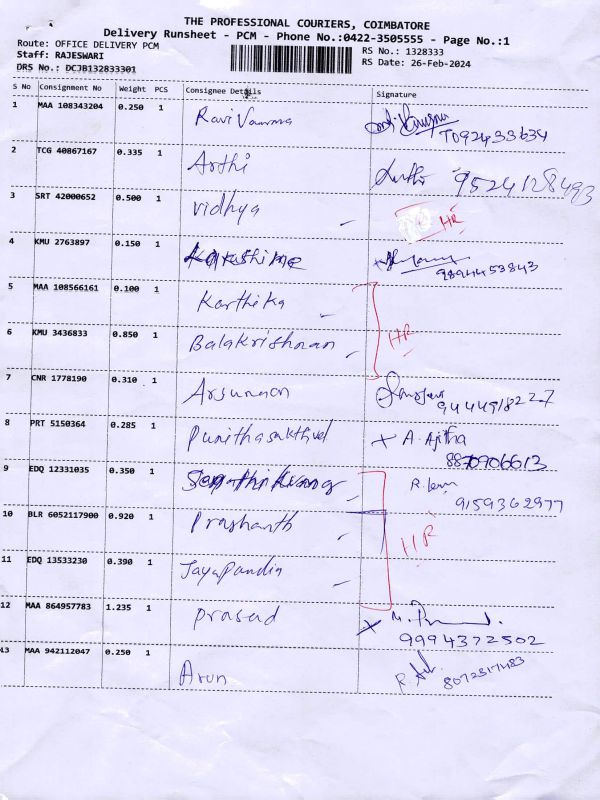 THE PROFESSIONAL COURIERS, COIMBATORE
Delivery Runsheet - PCM - Phone No.:0422-3505555 - Page No.:1
Route: OFFICE DELIVERY PCM
RS No.: 1328333
Staff: RAJESWARI
RS Date: 26-Feb-2024
DRS No.: DCJB132833301
S No Consignment No Weight PCS Consignee Details Signature
1 MAA 108343204 0.250 1 Ravi Varma
2 TCG 40867167 0.335 1 Arthi 9524128493
3 SRT 42000652 0.500 1 Vidhya HR
4 KMU 2763897 0.150 1 9894453843
5 MAA 108566161 0.100 1 Karthika
HR
6 KMU 3436833 0.850 1 Balakrishnan
7 CNR 1778190 0.310 1 9444918227
8 PRT 5150364 0.285 1 Punithasakthivel A. Ajitha
8870906613
9 EDQ 12331035 0.350 1
9159362977
10 BLR 6052117900 0.920 1 Prashanth
HR
11 EDQ 13533230 0.390 1 Jayapandin
12 MAA 864957783 1.235 1 Prasad
9994372502
13 MAA 942112047 0.250 1 Arun
8072517483